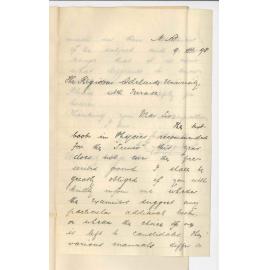 9. 98
The Registrar Adelaide University
Nth Terrace
Dear Sir,
The text
book in Physics recommended
for the "Senior" this year
does not cover the pre-
scribed ground I shall be
greatly obliged if you will
kindly inform me whether
the Examiners suggest any
particular additional book
or whether the choice of
is left to candidates. The
various manuals differ